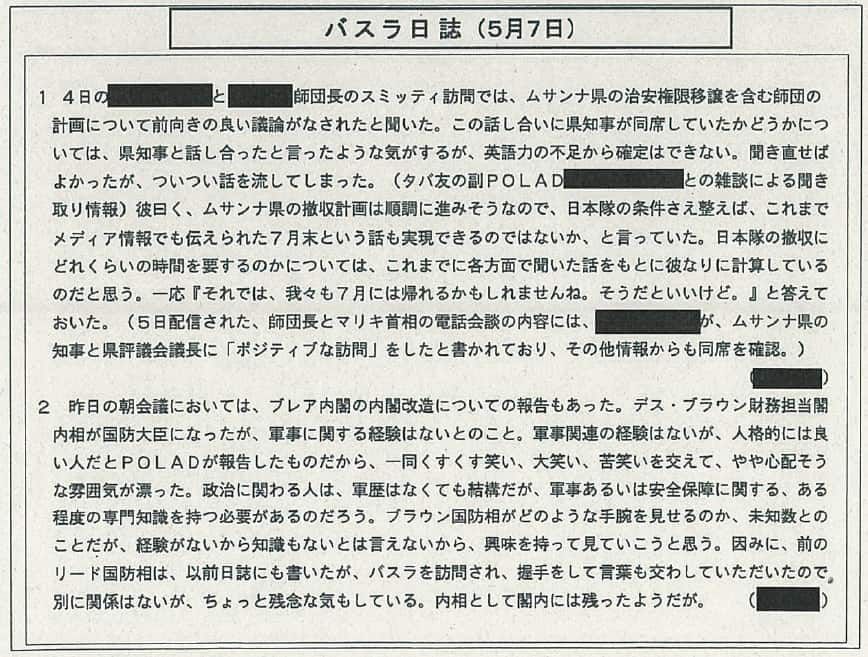 バスラ日誌（5月7日）
1　4日の　と　師団長のスミッティ訪問では、ムサンナ県の治安権限移譲を含む師団の
計画について前向きの良い議論がなされたと聞いた。この話し合いに県知事が同席していたかどうかにつ
いては、県知事と話し合ったと言ったような気がするが、英語力の不足から確定はできない。聞き直せば
よかったが、ついつい話を流してしまった。（タバ友の副ＰＯＬＡＤ　との雑談による聞き
取り情報）彼曰く、ムサンナ県の撤収計画は順調に進みそうなので、日本隊の条件さえ整えば、これまで
メディア情報でも伝えられた７月末という話も実現できるのではないか、と言っていた。日本隊の撤収に
どれくらいの時間を要するのかについては、これまでに各方面で聞いた話をもとに彼なりに計算している
のだと思う。一応『それでは、我々も７月には帰れるかもしれませんね。そうだといいけど。』と答えて
おいた。（５日配信された、師団長とマリキ首相の電話会談の内容には、　が、ムサンナ県の
知事と県評議会議長に「ポジティブな訪問」をしたと書かれており、その他情報からも同席を確認。）
（　）
2　昨日の朝会議においては、ブレア内閣の内閣改造についての報告もあった。デス・ブラウン財務担当閣
内相が国防大臣になったが、軍事に関する経験はないとのこと。軍事関連の経験はないが、人格的には良
い人だとＰＯＬＡＤが報告したものだから、一同くすくす笑い、大笑い、苦笑いを交えて、やや心配そう
な雰囲気が漂った。政治に関わる人は、軍歴はなくても結構だが、軍事あるいは安全保障に関する、ある
程度の専門知識を持つ必要があるのだろう。ブラウン国防相がどのような手腕を見せるのか、未知数との
ことだが、経験がないから知識もないとは言えないから、興味を持って見ていこうと思う。因みに、前の
リード国防相は、以前日誌にも書いたが、バスラを訪問され、握手をして言葉も交わしていただいたので、
別に関係はないが、ちょっと残念な気もしている。内相として閣内には残ったようだが。　（　）